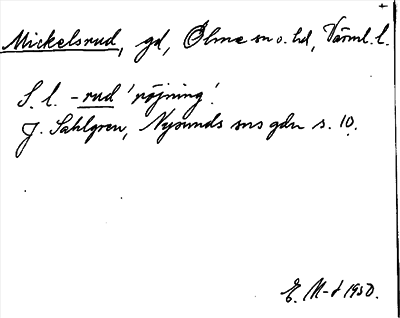 +
Mickelsrud, gd, Ölme sn o. hd, Värml. l.
S. l. -rud 'röjning'.
J. Sahlgren, Nysunds sns gdn s. 10.
E. M-d 1950.